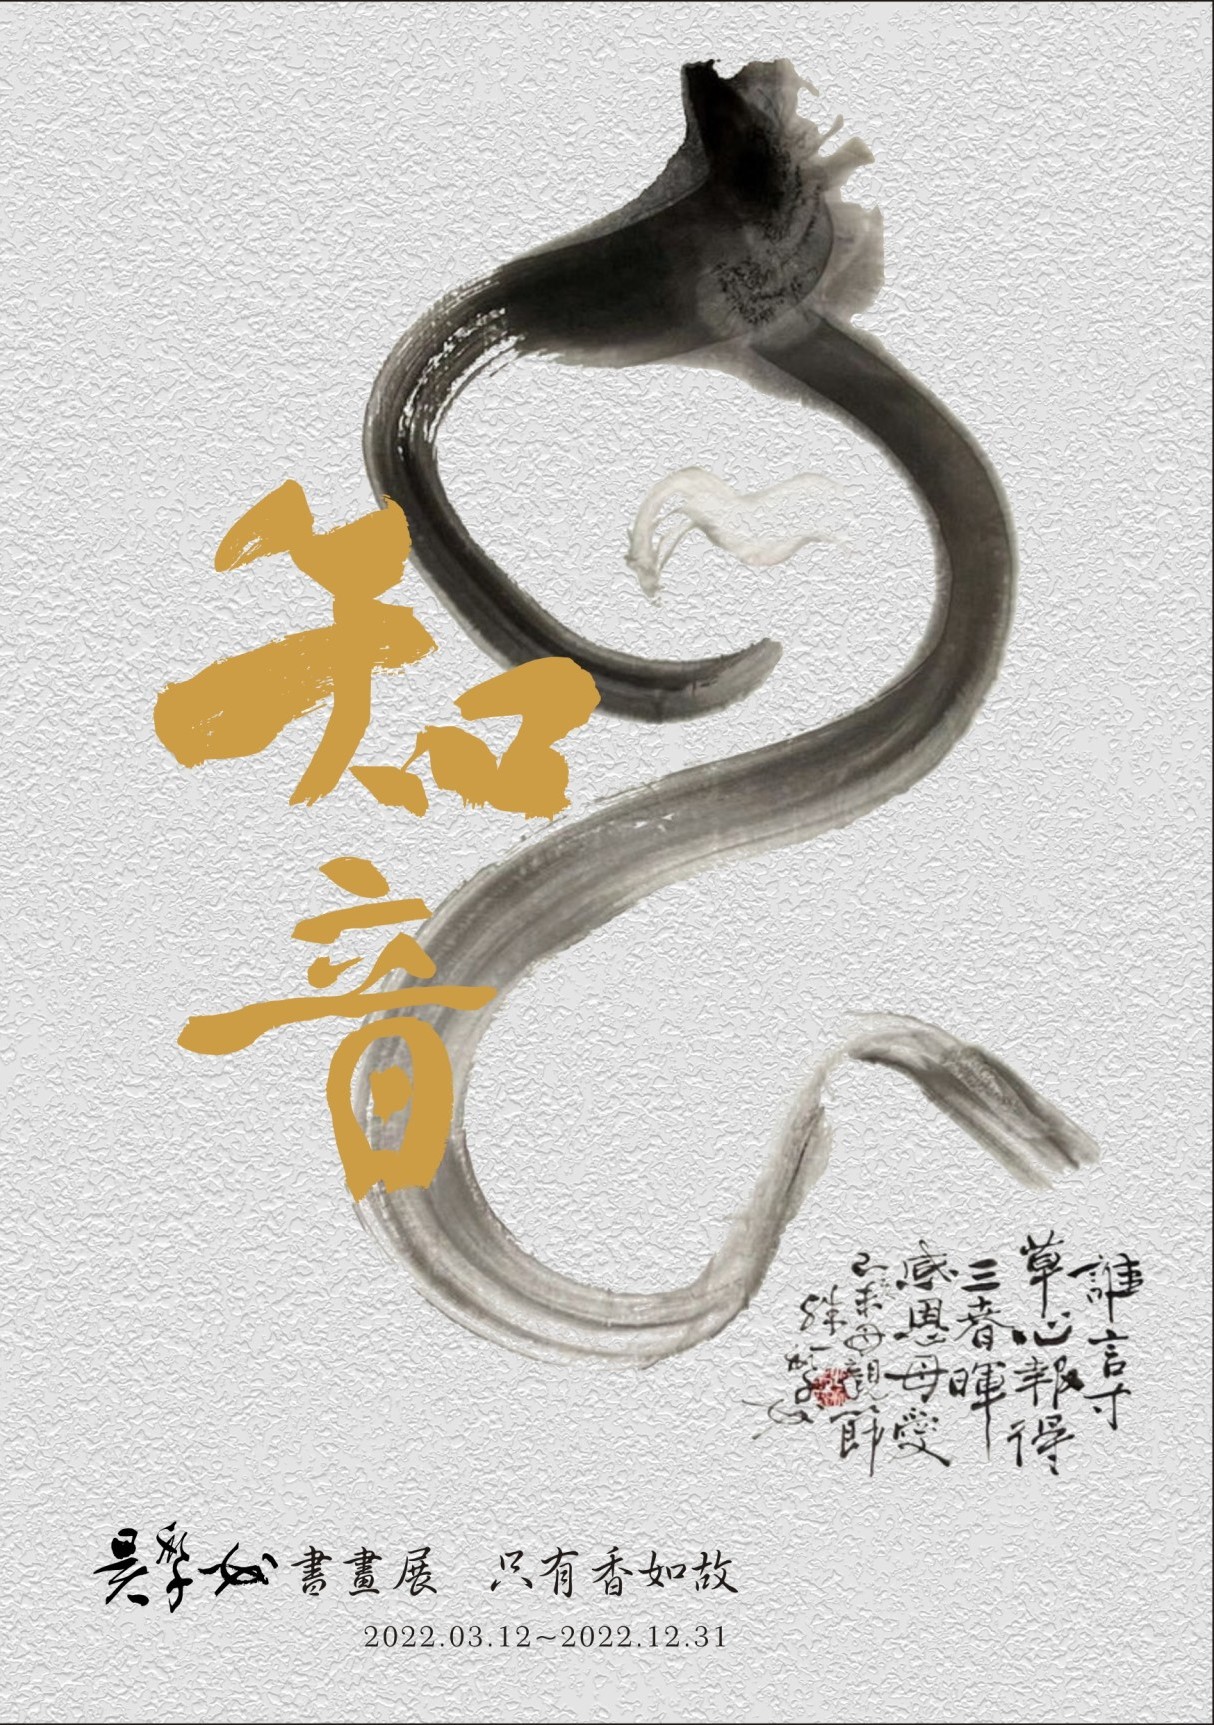 知音
誰言寸
草心報得
三春暉
感恩母愛
母親節
書畫展 只有香如故
2022.03.12~2022.12.31